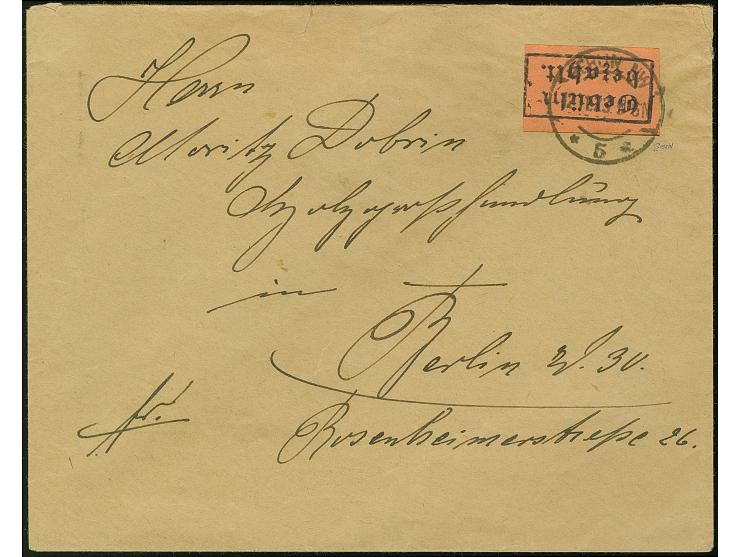 Gebühr
bezahlt.
* 5 a
Herrn
Moritz Dobrin
Holzgroßhandlung
in
Berlin W. 30.
Rosenheimerstraße 26.